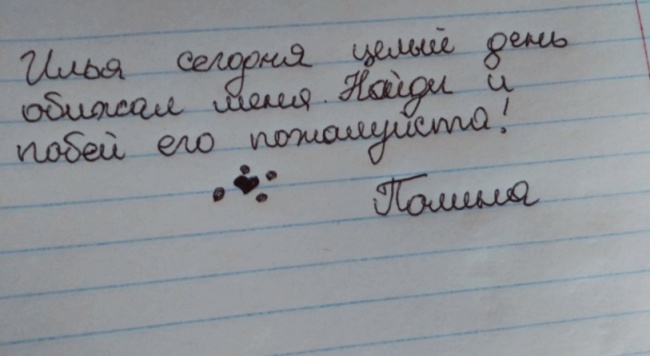 Илья сегодня целый день
обижал меня. Найди и
побей его пожалуйста!
Полина